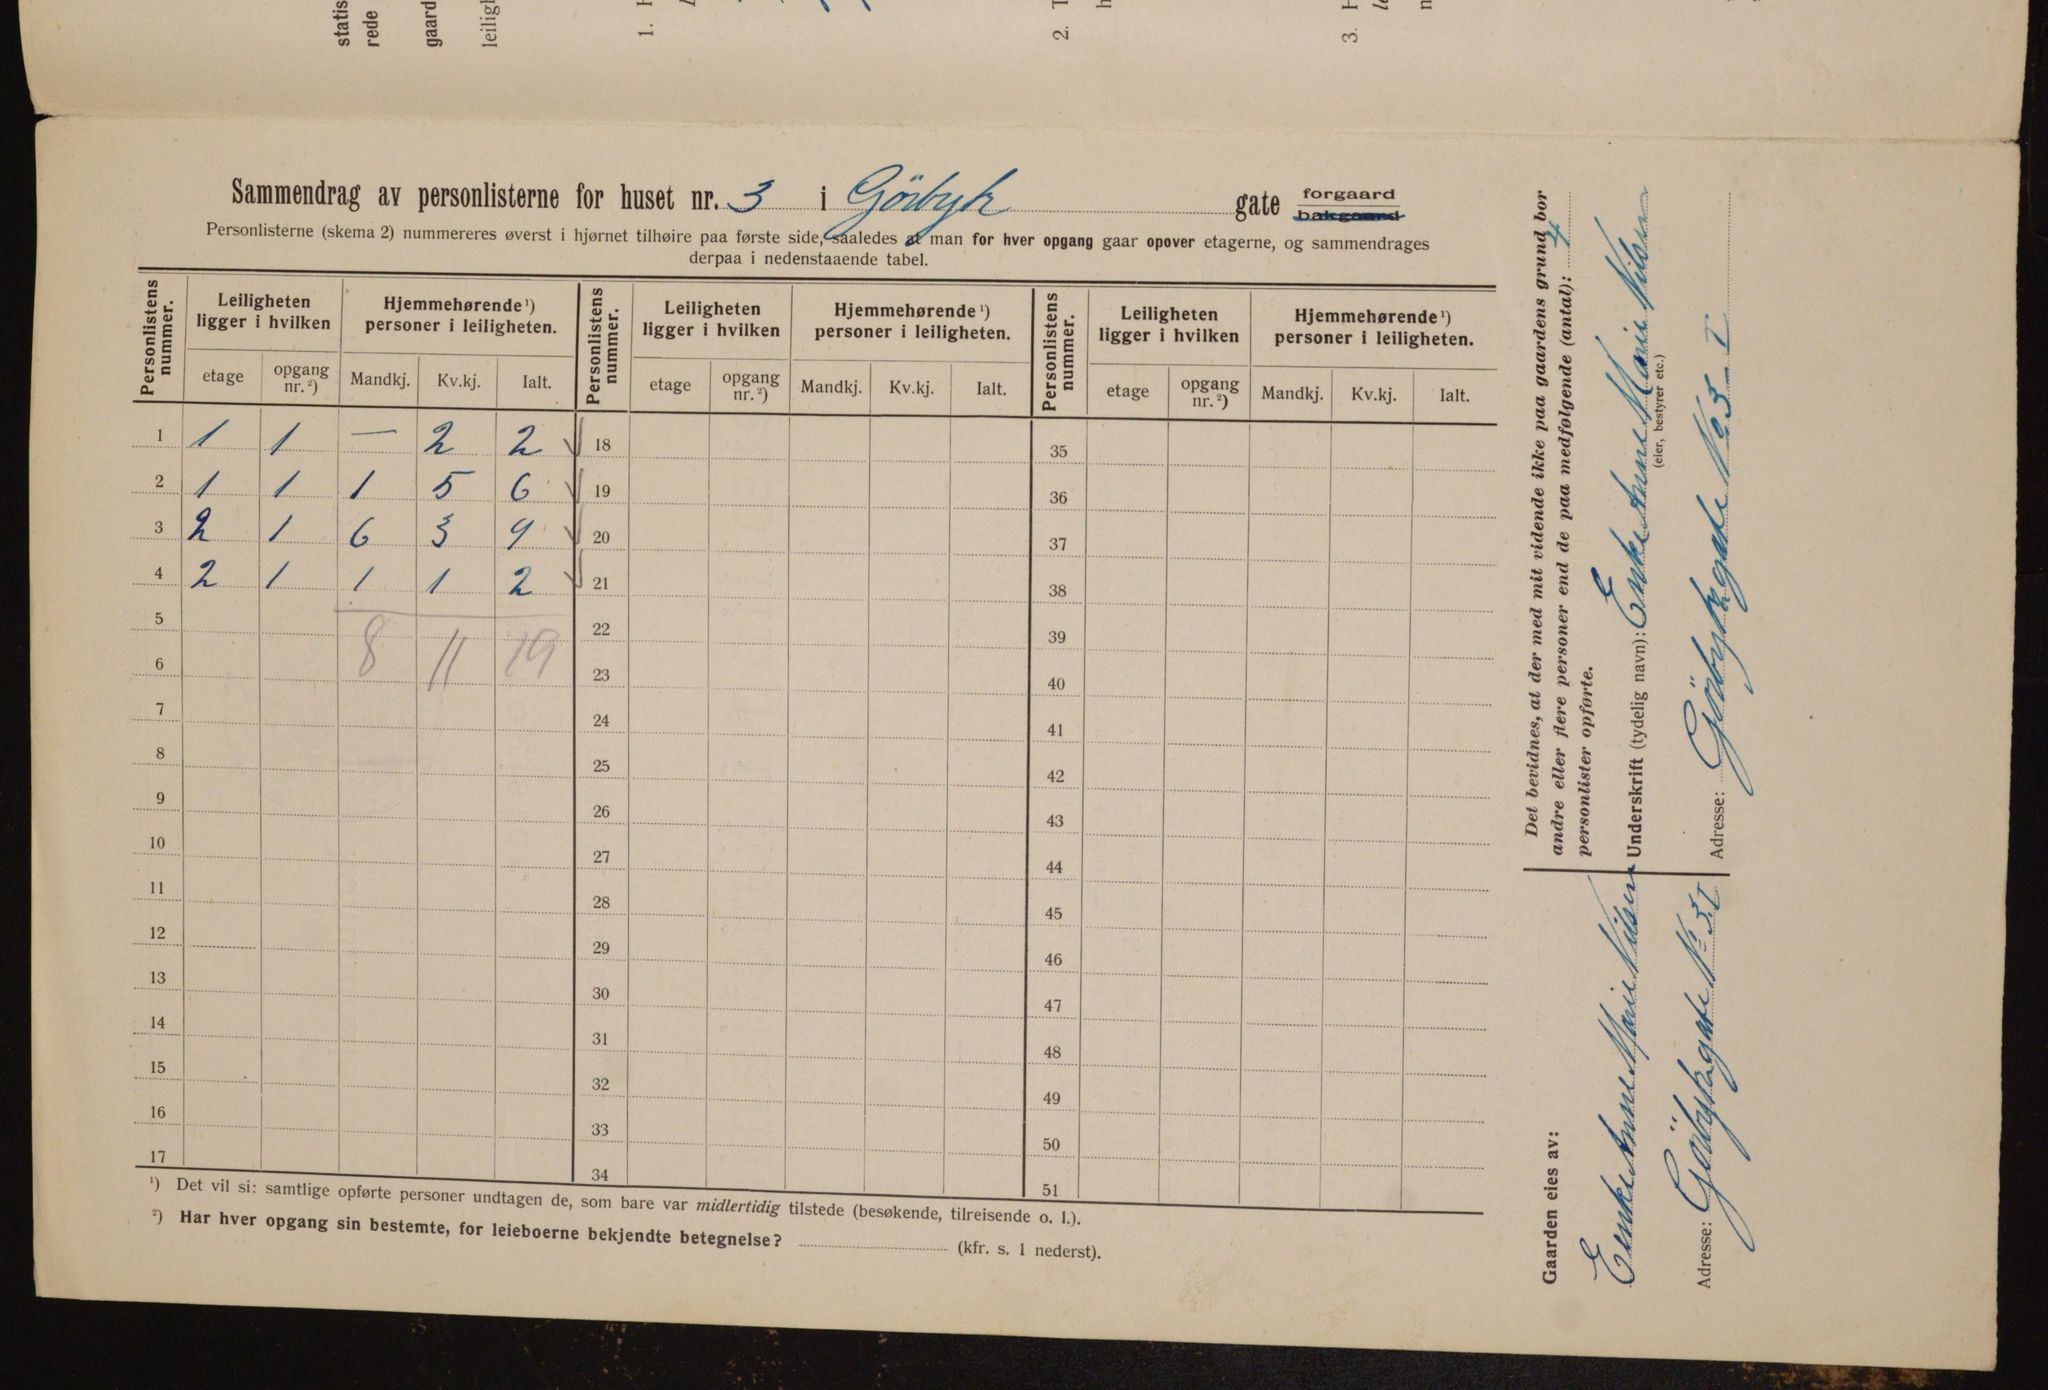 statis
rede
gaard
leiligh
1.
2. T
3. H
Sammendrag av personlisterne for huset nr. 3 i Görbyk gate forgaard
bakgaard
Personlisterne (skema 2) nummereres øverst i hjørnet tilhøire paa første side, saaledes at man for hver opgang gaar opover etagerne, og sammendrages
derpaa i nedenstaaende tabel.
Personlistens nummer. Leiligheten ligger i hvilken Hjemmehørende¹) personer i leiligheten. Personlistens nummer. Leiligheten ligger i hvilken Hjemmehørende¹) personer i leiligheten. Personlistens nummer. Leiligheten ligger i hvilken Hjemmehørende¹) personer i leiligheten.
etage opgang nr.²) Mandkj. Kv.kj. Ialt. etage opgang nr.²) Mandkj. Kv.kj. Ialt. etage opgang nr.²) Mandkj. Kv.kj. Ialt.
1 1 1 — 2 2 18 35
2 1 1 1 5 6 19 36
3 2 1 6 3 9 20 37
4 2 1 1 1 2 21 38
5 22 39
6 8 11 19 23 40
7 24 41
8 25 42
9 26 43
10 27 44
11 28 45
12 29 46
13 30 47
14 31 48
15 32 49
16 33 50
17 34 51
¹) Det vil si: samtlige opførte personer undtagen de, som bare var midlertidig tilstede (besøkende, tilreisende o. l.).
²) Har hver opgang sin bestemte, for leieboerne bekjendte betegnelse? (kfr. s. 1 nederst).
Det bevidnes, at der med mit vidende ikke paa gaardens grund bor
andre eller flere personer end de paa medfølgende (antal): 4
personlister opførte.
Underskrift (tydelig navn): Enke Anne Marie Nilsen
(eier, bestyrer etc.)
Adresse: Görbykgade No 3 I
Gaarden eies av:
Enke Anne Marie Nilsen
Adresse: Görbykgate No 3 I